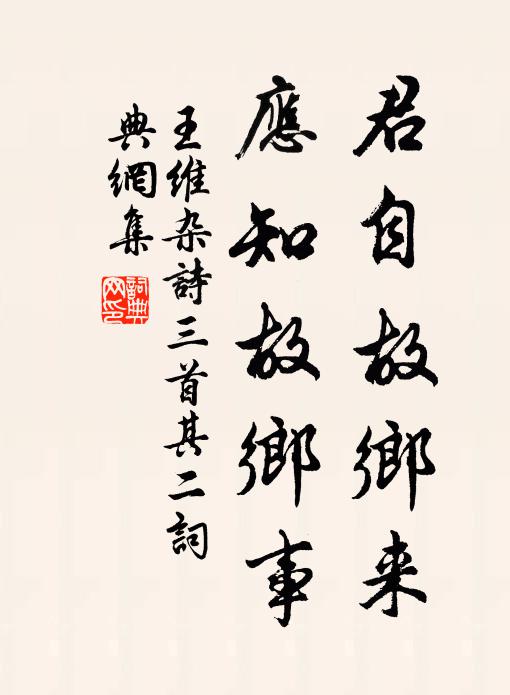 君自故鄉来
應知故鄉事
王維杂詩三首其二詞
典網集
詞典
网印